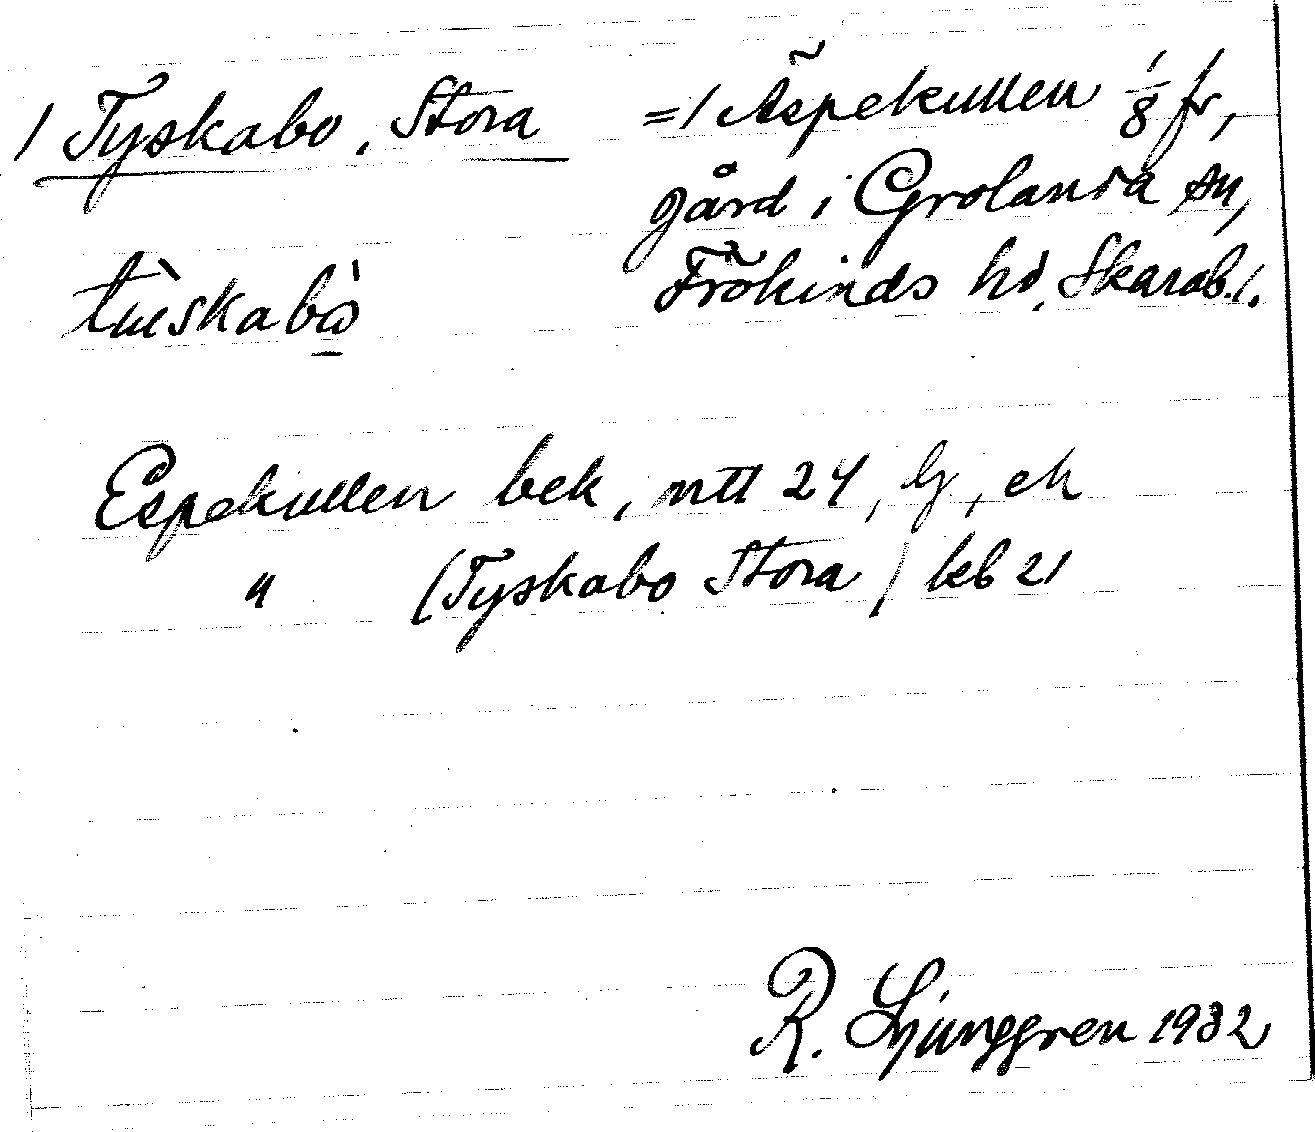 / Tyskabo, Stora =/ Äspekullen 1/8 fr,
gård i Grolanda sn,
Frökinds hd, Skarab. l.
Espekullen bek, mtl 24, lj, ek
" (Tyskabo Stora) leb 21
R. Ljunggren 1932